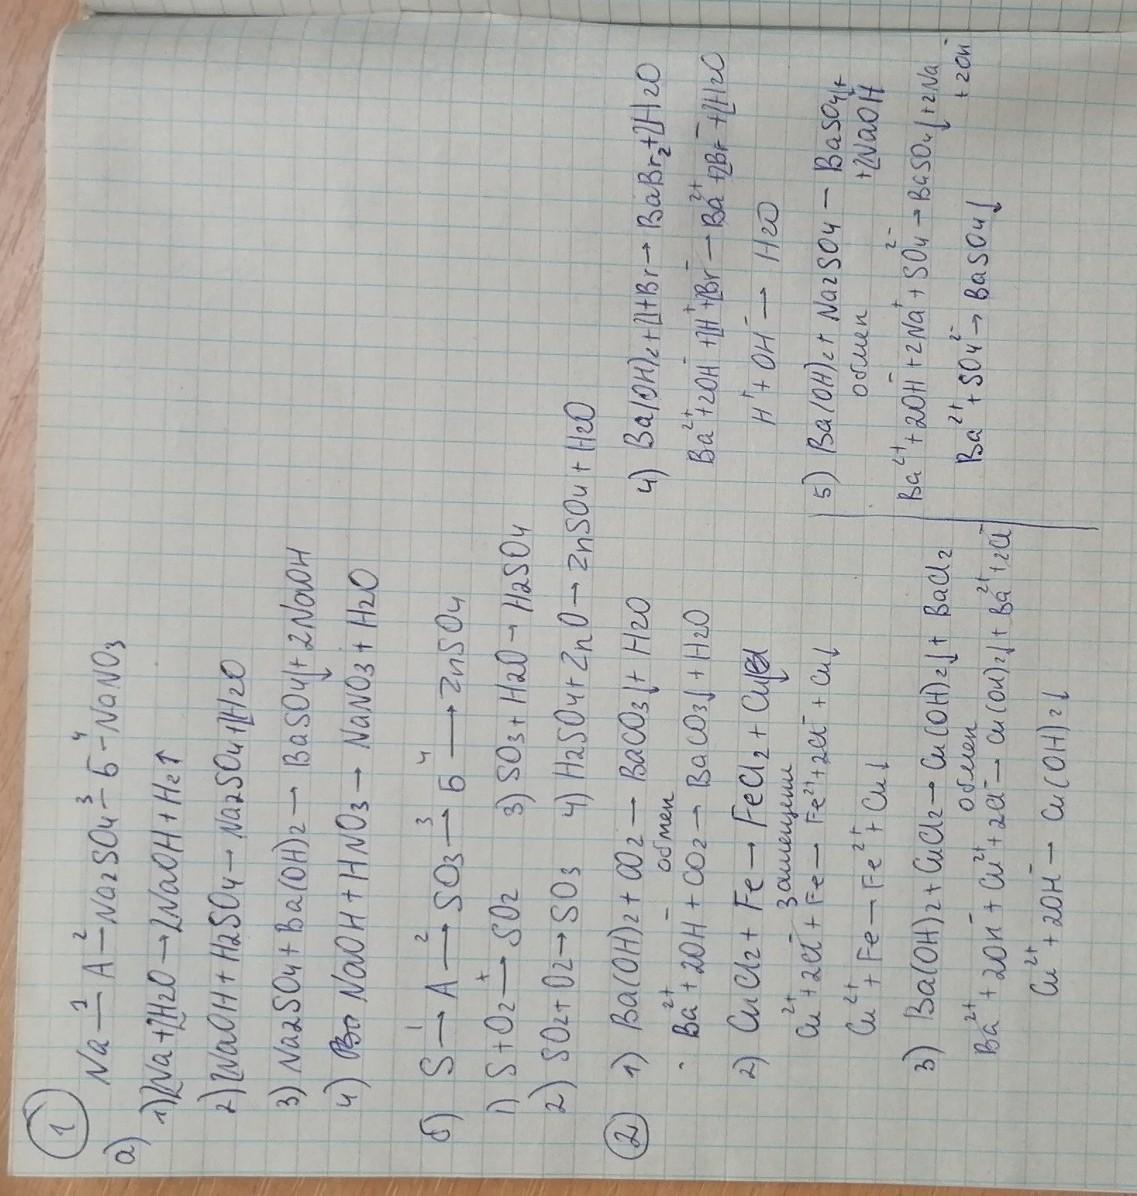 1
а) Na —1— A —2— Na2SO4 —3— Б —4— NaNO3
1) 2Na + 2H2O → 2NaOH + H2↑
2) 2NaOH + H2SO4 → Na2SO4 + 2H2O
3) Na2SO4 + Ba(OH)2 → BaSO4↓ + 2NaOH
4) NaOH + HNO3 → NaNO3 + H2O
б) S —1→ A —2→ SO3 —3→ Б —4→ ZnSO4
1) S + O2 → SO2
2) SO2 + O2 → SO3
3) SO3 + H2O → H2SO4
4) H2SO4 + ZnO → ZnSO4 + H2O
2
1) Ba(OH)2 + CO2 → BaCO3↓ + H2O
обмен
Ba2+ + 2OH- + CO2 → BaCO3↓ + H2O
2) CuCl2 + Fe → FeCl2 + Cu↓
замещении
Cu2+ + 2Cl- + Fe → Fe2+ + 2Cl- + Cu↓
Cu2+ + Fe → Fe2+ + Cu↓
3) Ba(OH)2 + CuCl2 → Cu(OH)2↓ + BaCl2
обмен
Ba2+ + 2OH- + Cu2+ + 2Cl- → Cu(OH)2↓ + Ba2+ + 2Cl-
Cu2+ + 2OH- → Cu(OH)2↓
4) Ba(OH)2 + 2HBr → BaBr2 + 2H2O
Ba2+ + 2OH- + 2H+ + 2Br- → Ba2+ + 2Br- + 2H2O
H+ + OH- → H2O
5) Ba(OH)2 + Na2SO4 — BaSO4↓ +
+ 2NaOH
обмен
Ba2+ + 2OH- + 2Na+ + SO4 2- → BaSO4↓ + 2Na
+ 2OH-
Ba2+ + SO4 2- → BaSO4↓